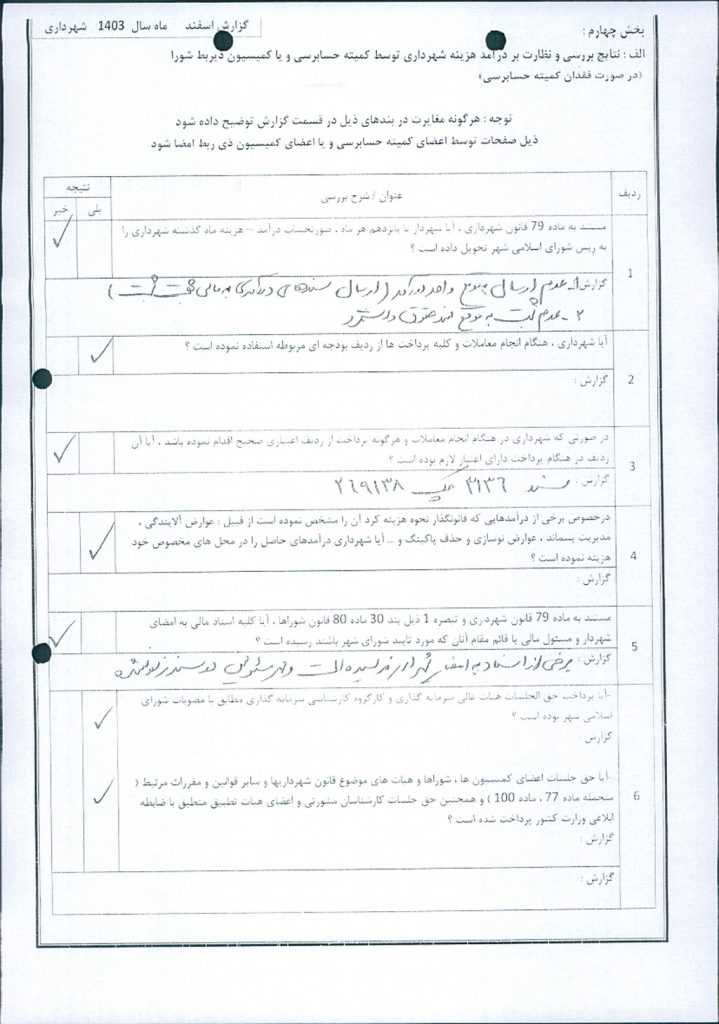 گزارش اسفند ماه سال 1403 شهرداری
بخش چهارم :
الف : نتایج بررسی و نظارت بر درآمد هزینه شهرداری توسط کمیته حسابرسی و یا کمیسیون ذیربط شورا
(در صورت فقدان کمیته حسابرسی)
توجه : هرگونه مغایرت در بندهای ذیل در قسمت گزارش توضیح داده شود
ذیل صفحات توسط اعضای کمیته حسابرسی و یا اعضای کمیسیون ذی ربط امضا شود
ردیف عنوان / شرح بررسی نتیجه
بلی خیر
مستند به ماده 79 قانون شهرداری ، آیا شهردار تا پانزدهم هر ماه ، صورتحساب درآمد -- هزینه ماه گذشته شهرداری را
به ریس شورای اسلامی شهر تحویل داده است ؟
1
گزارش: 1- عدم ارسال به موقع واحد درآمد (ارسال سندهای درآمدی به مالی جهت ثبت)
۲- عدم ثبت به موقع سند حقوق و دستمزد
آیا شهرداری ، هنگام انجام معاملات و کلیه پرداخت ها از ردیف بودجه ای مربوطه استفاده نموده است ؟
2
گزارش :
در صورتی که شهرداری در هنگام انجام معاملات و هرگونه پرداخت از ردیف اعتباری صحیح اقدام نموده باشد ، آیا آن
ردیف در هنگام پرداخت دارای اعتبار لازم بوده است ؟
3
گزارش : سند ۳۱۳۶ چک ۲۶۹۱۳۸
درخصوص برخی از درآمدهایی که قانونگذار نحوه هزینه کرد آن را مشخص نموده است از قبیل : عوارض آلایندگی ،
مدیریت پسماند ، عوارض نوسازی و حذف پاکینگ و ... آیا شهرداری درآمدهای حاصل را در محل های مخصوص خود
هزینه نموده است ؟
4
گزارش :
مستند به ماده 79 قانون شهرداری و تبصره 1 ذیل بند 30 ماده 80 قانون شوراها ، آیا کلیه اسناد مالی به امضای
شهردار و مسئول مالی یا قائم مقام آنان که مورد تایید شورای شهر باشند رسیده است ؟
5
گزارش : برخی از اسناد به امضا شهردار نرسیده است و مهر مسئولین در سند زده نشده
-آیا پرداخت حق الجلسات هیات عالی سرمایه گذاری و کارگروه کارشناسی سرمایه گذاری مطابق با مصوبات شورای
اسلامی شهر بوده است ؟
گزارش :
-آیا حق جلسات اعضای کمیسیون ها ، شوراها و هیات های موضوع قانون شهرداریها و سایر قوانین و مقررات مرتبط (
منجمله ماده 77 ، ماده 100 ) و همچنین حق جلسات کارشناسان مشورتی و اعضای هیات تطبیق منطبق با ضابطه
ابلاغی وزارت کشور پرداخت شده است ؟
6
گزارش :
گزارش :